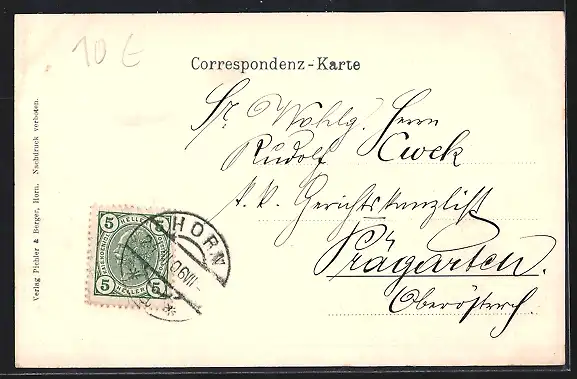 10 €
Correspondenz-Karte
Sr. Wohlg. Herrn
Rudolf Cwek
k. k. Gerichtskanzlist
Prägarten.
Oberösterreich
HORN
5 HELLER 5
5 HELLER 5
Verlag Pichler & Berger, Horn. Nachdruck verboten.